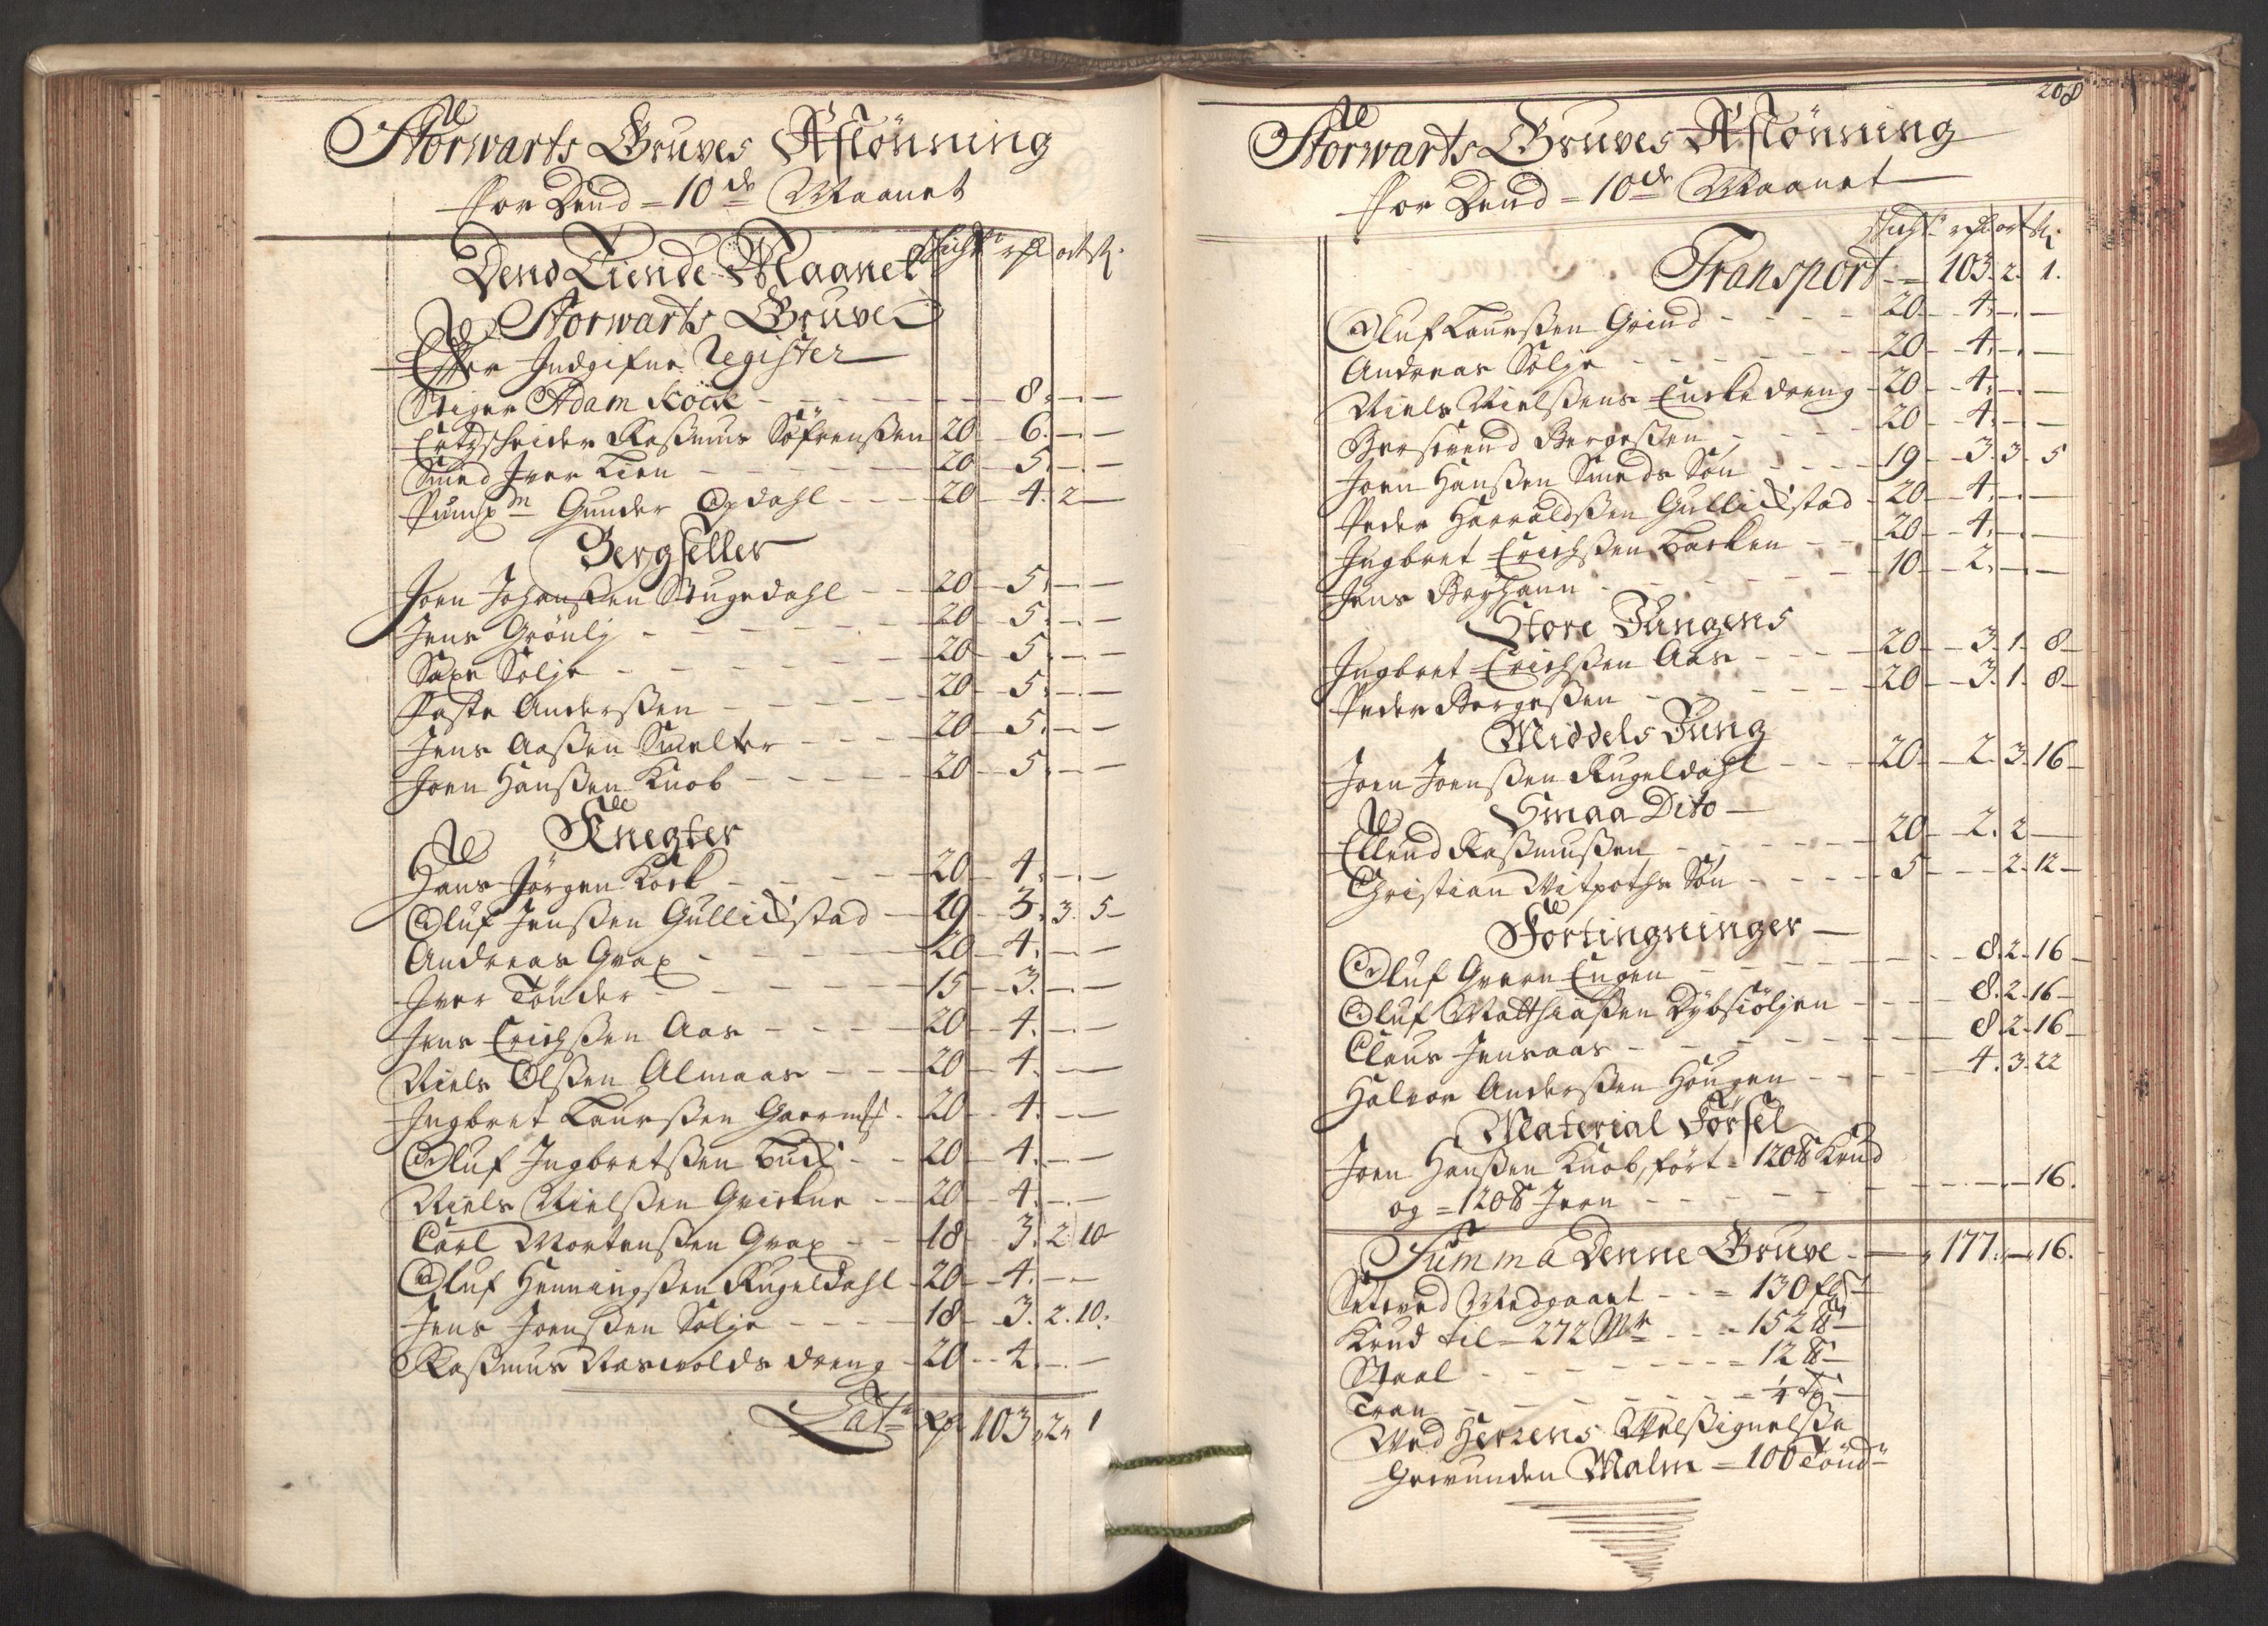 Storwarts Gruves Afslønning
for Dend = 10de Maanet
Dend Tiende Maanet Skicht rdl ort sk.
Storwarts Gruve
Efter Indgifne Register
Stiger Adam Kock - - - 8. - -
Ertzscheider Rasmus Söfrenßen 20 - 6. - -
Smed Iver Lien - - - 20 - 5. - -
Pump M Gunder Opdahl - - - 20 - 4. 2 -
Bergseller
Joen Johanßen Stugedahl - - 20 - 5. - -
Jens Grönli - - - 20 - 5. - -
Saxe Solje - - - 20 - 5. - -
Poste Anderßen - - - 20 - 5. - -
Jens Aaßen Smelter - - - 20 - 5. - -
Joen Hanßen Knob - - - 20 - 5. - -
Knegter
Hans Jörgen Kock - - - 20 - 4. - -
Oluf Jenßen Gullickstad - 19 - 3. 3. 5 -
Andreas Grax - - - 20 - 4. - -
Iver Tönder - - - 15 - 3. - -
Jens Erichßen Aas - - - 20 - 4. - -
Niels Olßen Almaas - - - 20 - 4. - -
Ingbret Laurßen - 20 - 4. - -
Oluf Ingbretßen Buck - - 20 - 4. - -
Niels Nielßen Qvickne - - 20 - 4. - -
Carl Mortenßen Grax - - 18 - 3. 2. 10 -
Oluf Henningßen Rugeldahl - 20 - 4. - -
Jens Joenßen Solje - - - 18 - 3. 2. 10.
Rasmus Naswolds dreng - 20 - 4. - -
Lat. Rdr 103, 2, 1
208
Storwarts Gruves Afslønning
for Dend = 10de Maanet
Skicht rdl ort sk.
Transport - = 103. 2. 1.
Oluf Laurßen Grind - - - 20 - 4. - -
Andreas Solje - - - 20 - 4. - -
Niels Nielßens Encke dreng - 20 - 4. - -
Bersvend Bergeßen - - - 20 - 4. - -
Joen Hanßen Smeds Søn - - - 19 - 3. 3. 5
Peder Harraldßen Gullickstad - 20 - 4. - -
Ingbret Erichßen Backen - - 20 - 4. - -
Jens Berghann - - - 10 - 2. - -
Store Jungens
Ingbret Erichßen Aas - - - 20 - 3. 1. 8 -
Peder Bergeßen - - - 20 - 3. 1. 8 -
Middels Jung
Joen Joenßen Rugeldahl - - - 20 - 2. 3. 16 -
Smaa Dito -
Ellend Rasmußen - - - 20 - 2. 2 -
Christian Witpoths Søn - - - 5 - - 2. 12 -
Fortingninger -
Oluf Qvern Engen - - - 8. 2. 16 -
Oluf Matthiaßen Dybsiöljen - - - 8. 2. 16 -
Claus Jensaas - - - 8. 2. 16 -
Halvor Anderßen Hougen - - - 4. 3. 22
Material Førsel
Joen Hanßen Knob, ført = 120 ℔ Krud
og = 120 ℔ Jern - - - 16.
Summa Denne Gruve - - 177. - 16.
Setteved Medgaaet - - = 130 fl
Krud til = 272 - - = 152 ℔ -
Staal - - - = 12 ℔ -
Tran - - - = 1/4
Ved Herrens Velsignelsse
Gewunden Malm = 100 Tönd